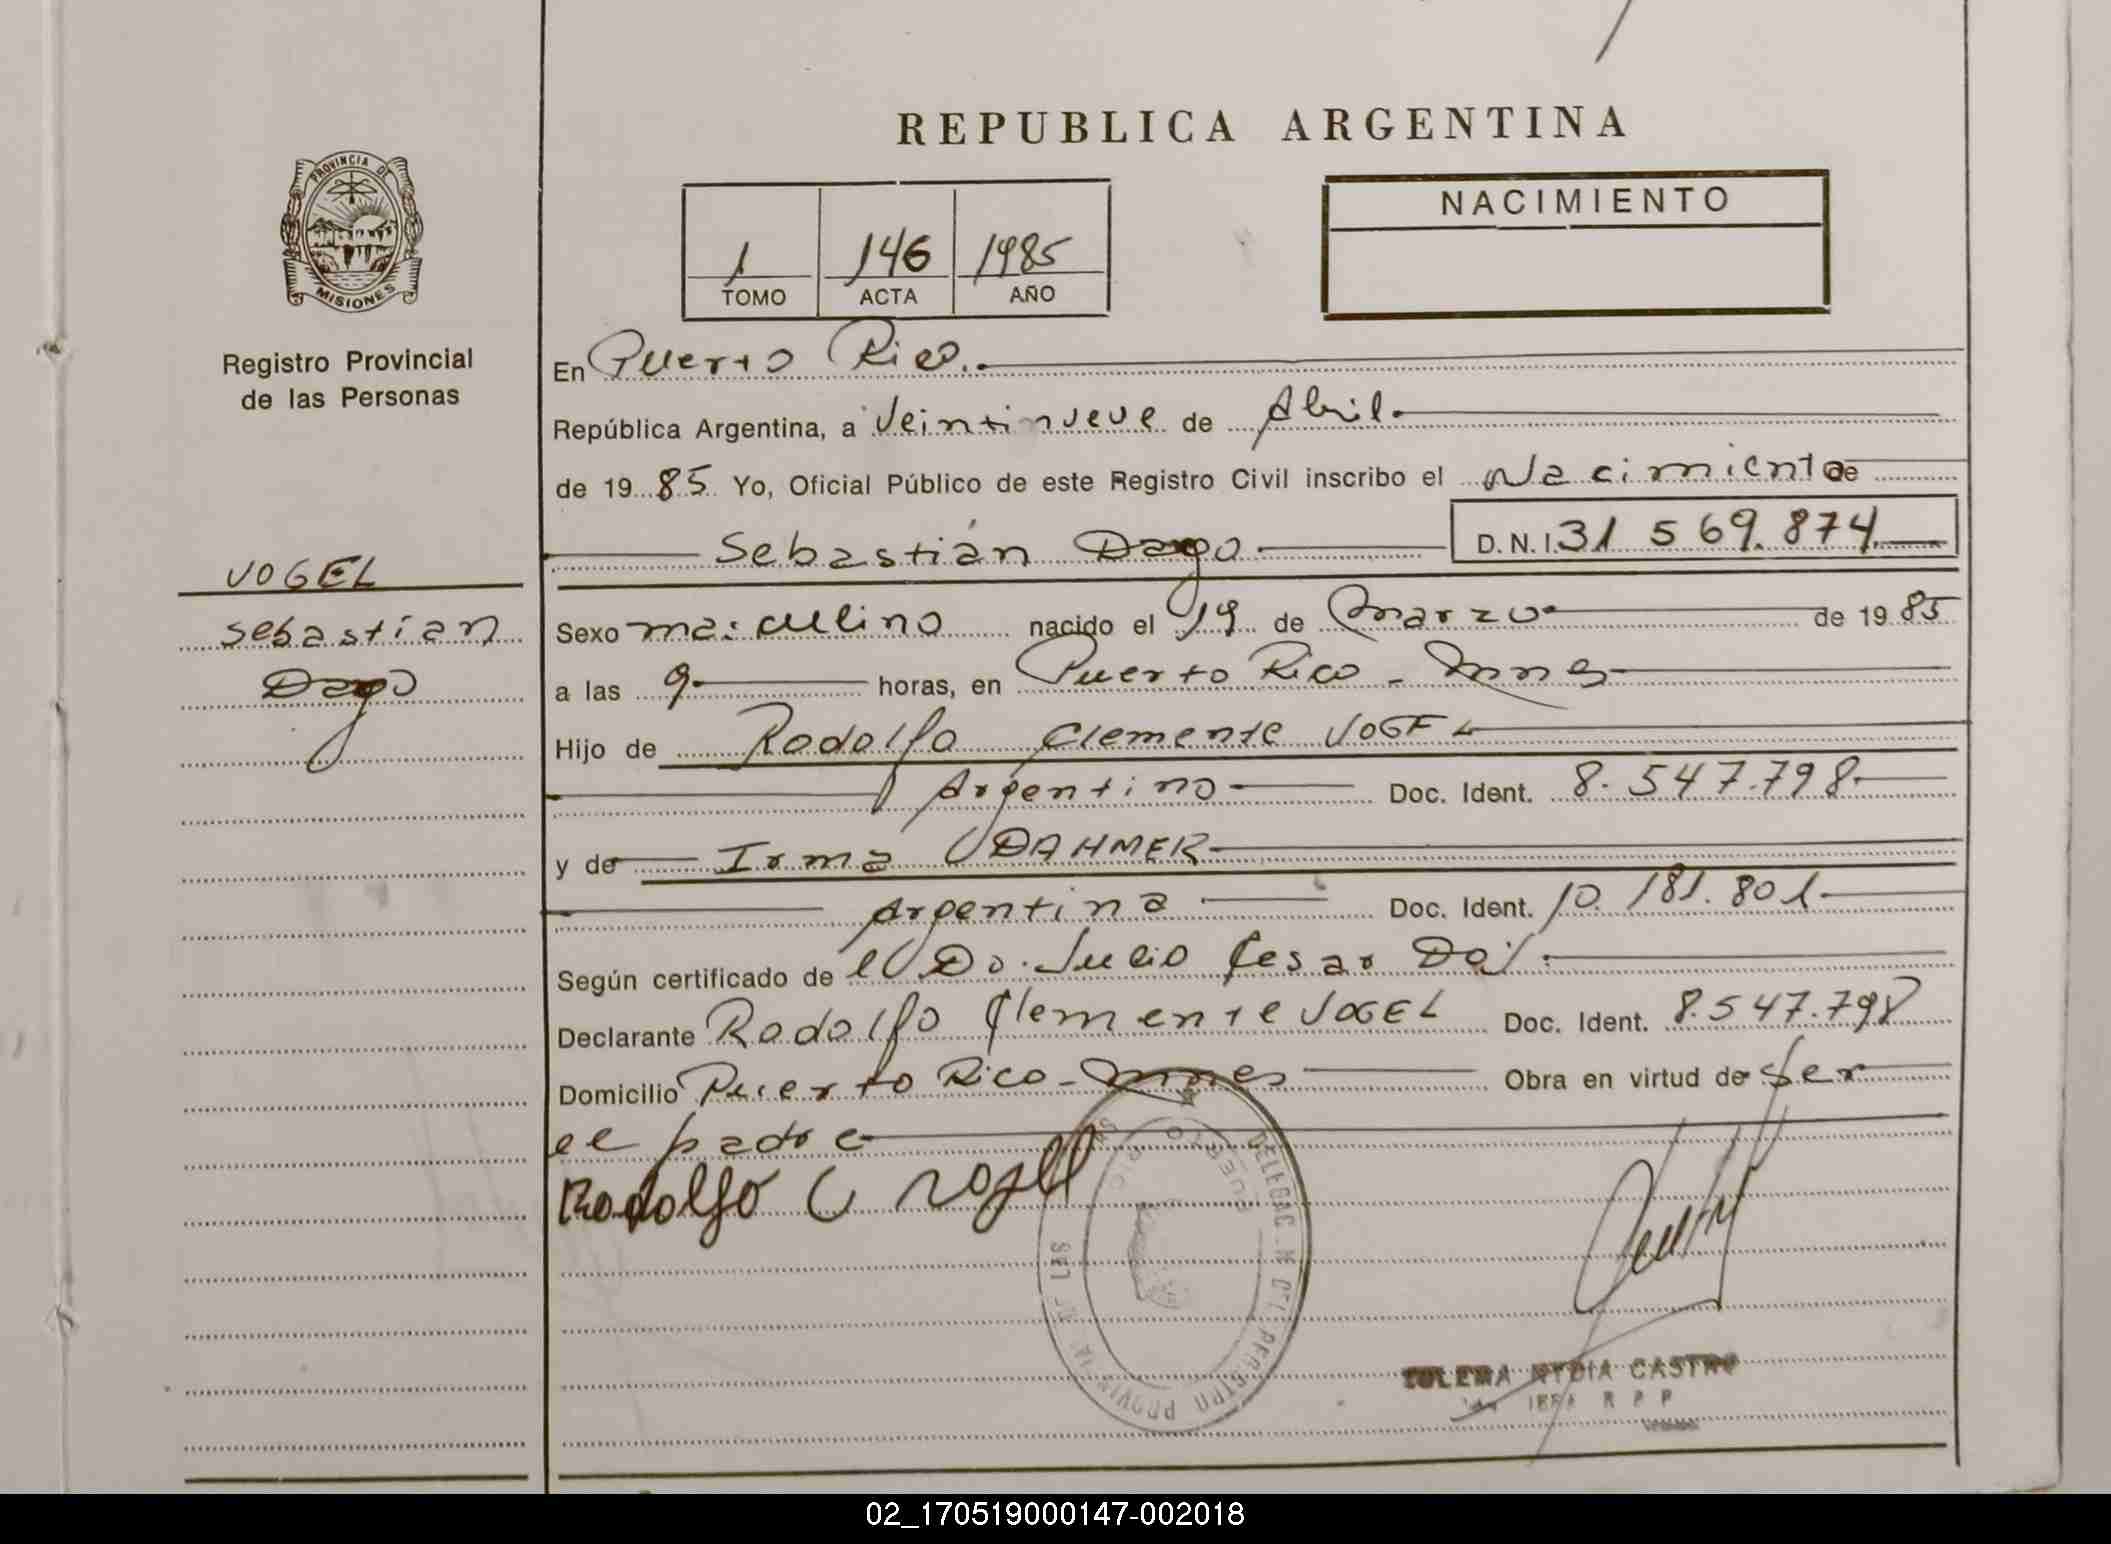 REPUBLICA ARGENTINA
PROVINCIA DE
MISIONES
Registro Provincial
de las Personas
1 146 1985
TOMO ACTA AÑO
NACIMIENTO
En Puerto Rico.
República Argentina, a Veintinueve de Abril.
de 19 85 Yo, Oficial Público de este Registro Civil inscribo el Nacimiento de
Sebastián Dago D.N.I. 31 569.874
VOGEL
Sebastián
Dago
Sexo masculino nacido el 19 de Marzo de 19 85
a las 9 horas, en Puerto Rico - Mnes
Hijo de Rodolfo Clemente VOGEL
Argentino Doc. Ident. 8.547.798
y de Irma DAHMER
Argentina Doc. Ident. 10.181.801
Según certificado de el Dr. Julio Cesar
Declarante Rodolfo Clemente VOGEL Doc. Ident. 8.547.798
Domicilio Puerto Rico - Mnes Obra en virtud de Ser
el padre
Rodolfo C Vogel
NYDIA CASTRO
02_170519000147-002018